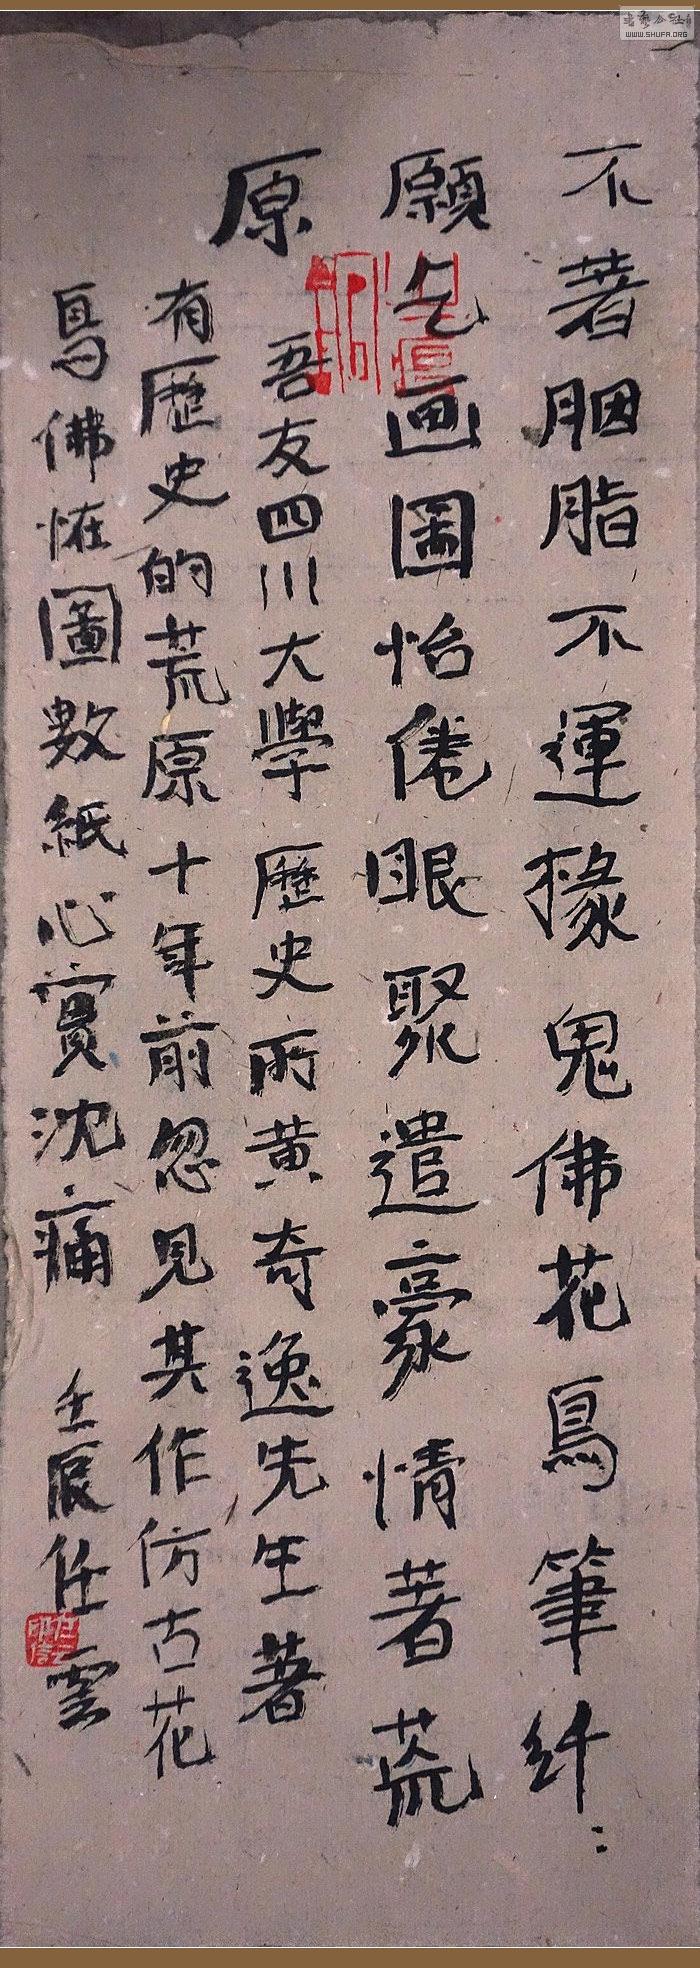 不著胭脂不運掾鬼佛花鳥筆纤〻
願乞画圖怡倦眼聚遣豪情著荒
原
吾友四川大學歷史所黄奇逸先生著
有歷史的荒原十年前忽见其作仿古花
鳥佛恠圖數紙心實沈痛
壬辰任雲
WWW.SHUFA.ORG